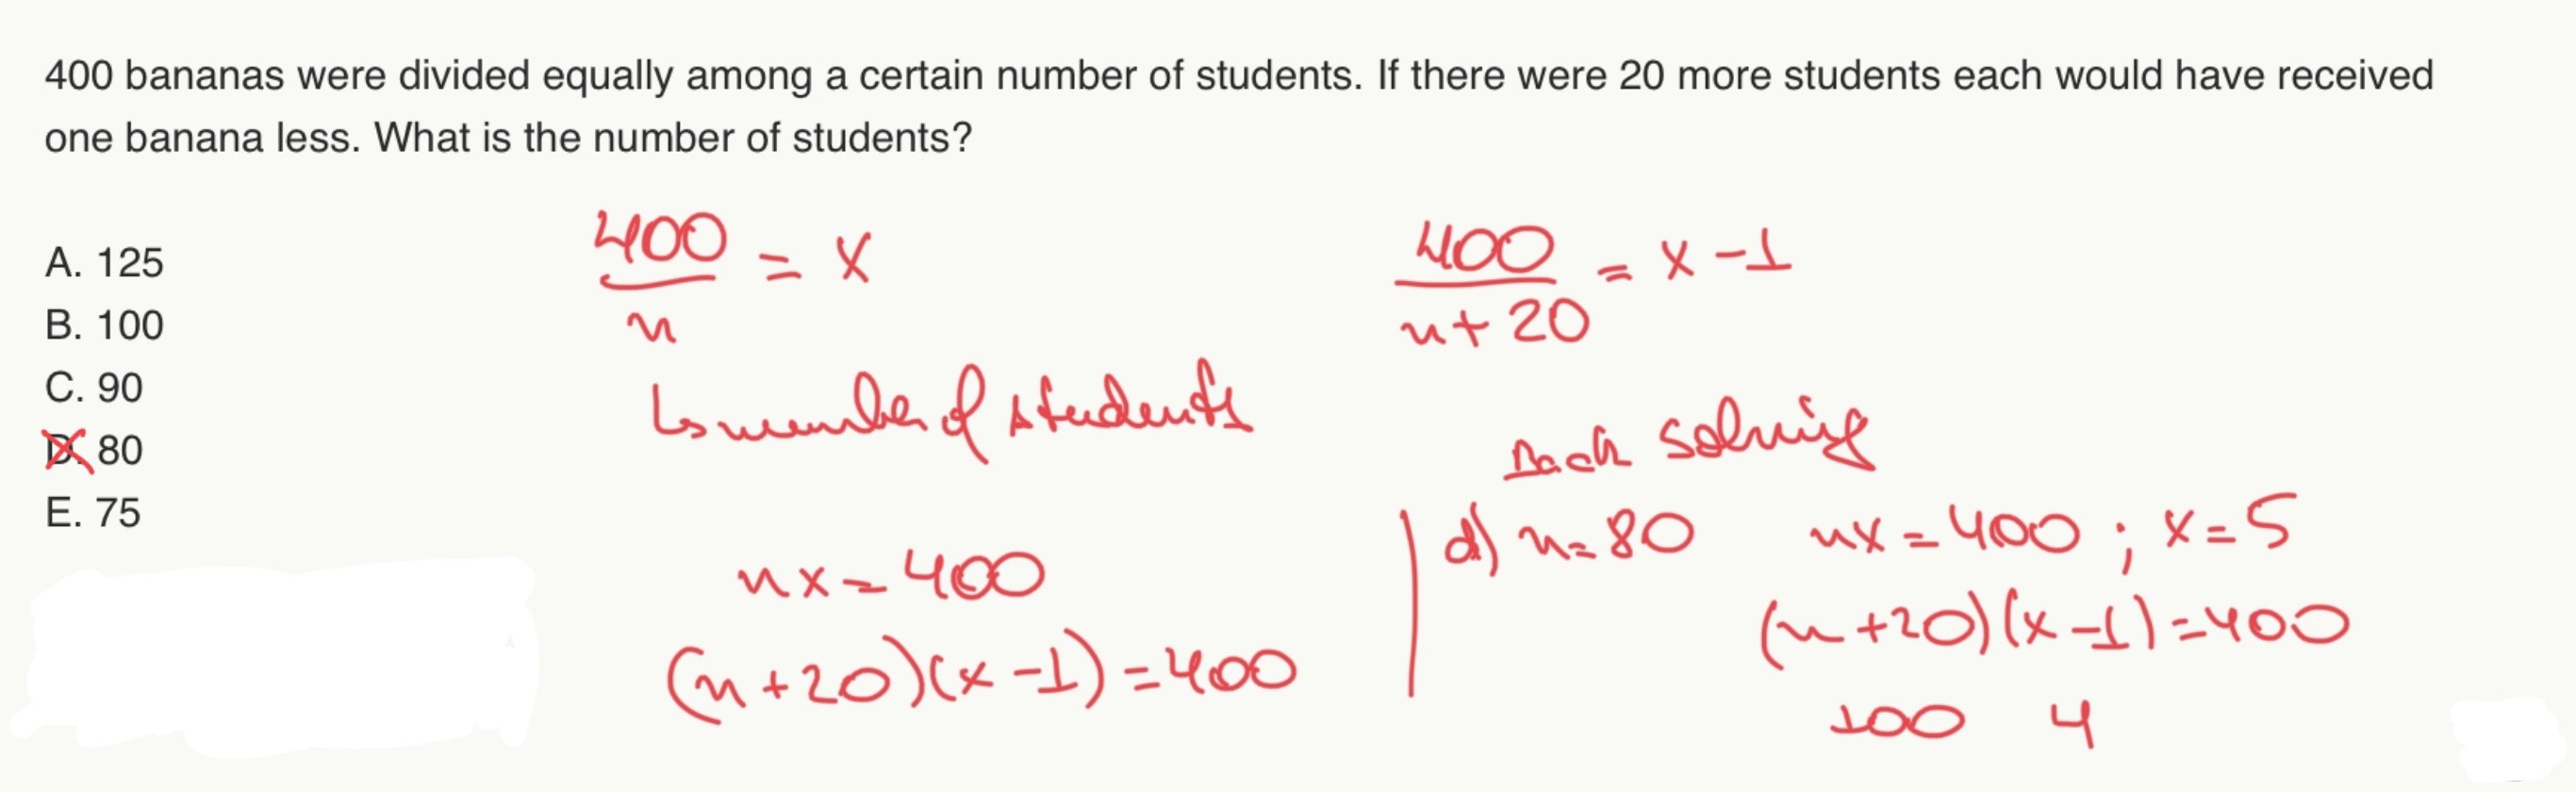 400 bananas were divided equally among a certain number of students. If there were 20 more students each would have received
one banana less. What is the number of students?
A. 125
B. 100
C. 90
D. 80
E. 75
400/n = x
↳ number of students
nx = 400
(n+20)(x-1) = 400
400/n+20 = x-1
Back solving
d) n=80 nx=400 ; x=5
(n+20)(x-1)=400
100 4